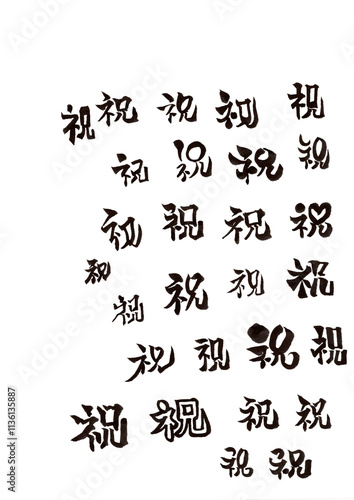 祝 祝 祝 祝 祝
祝 祝 祝 祝
祝 祝 祝 祝
祝 祝 祝 祝 祝
祝 祝 祝 祝
祝 祝 祝 祝
祝 祝
Adobe Stock | #1136135887